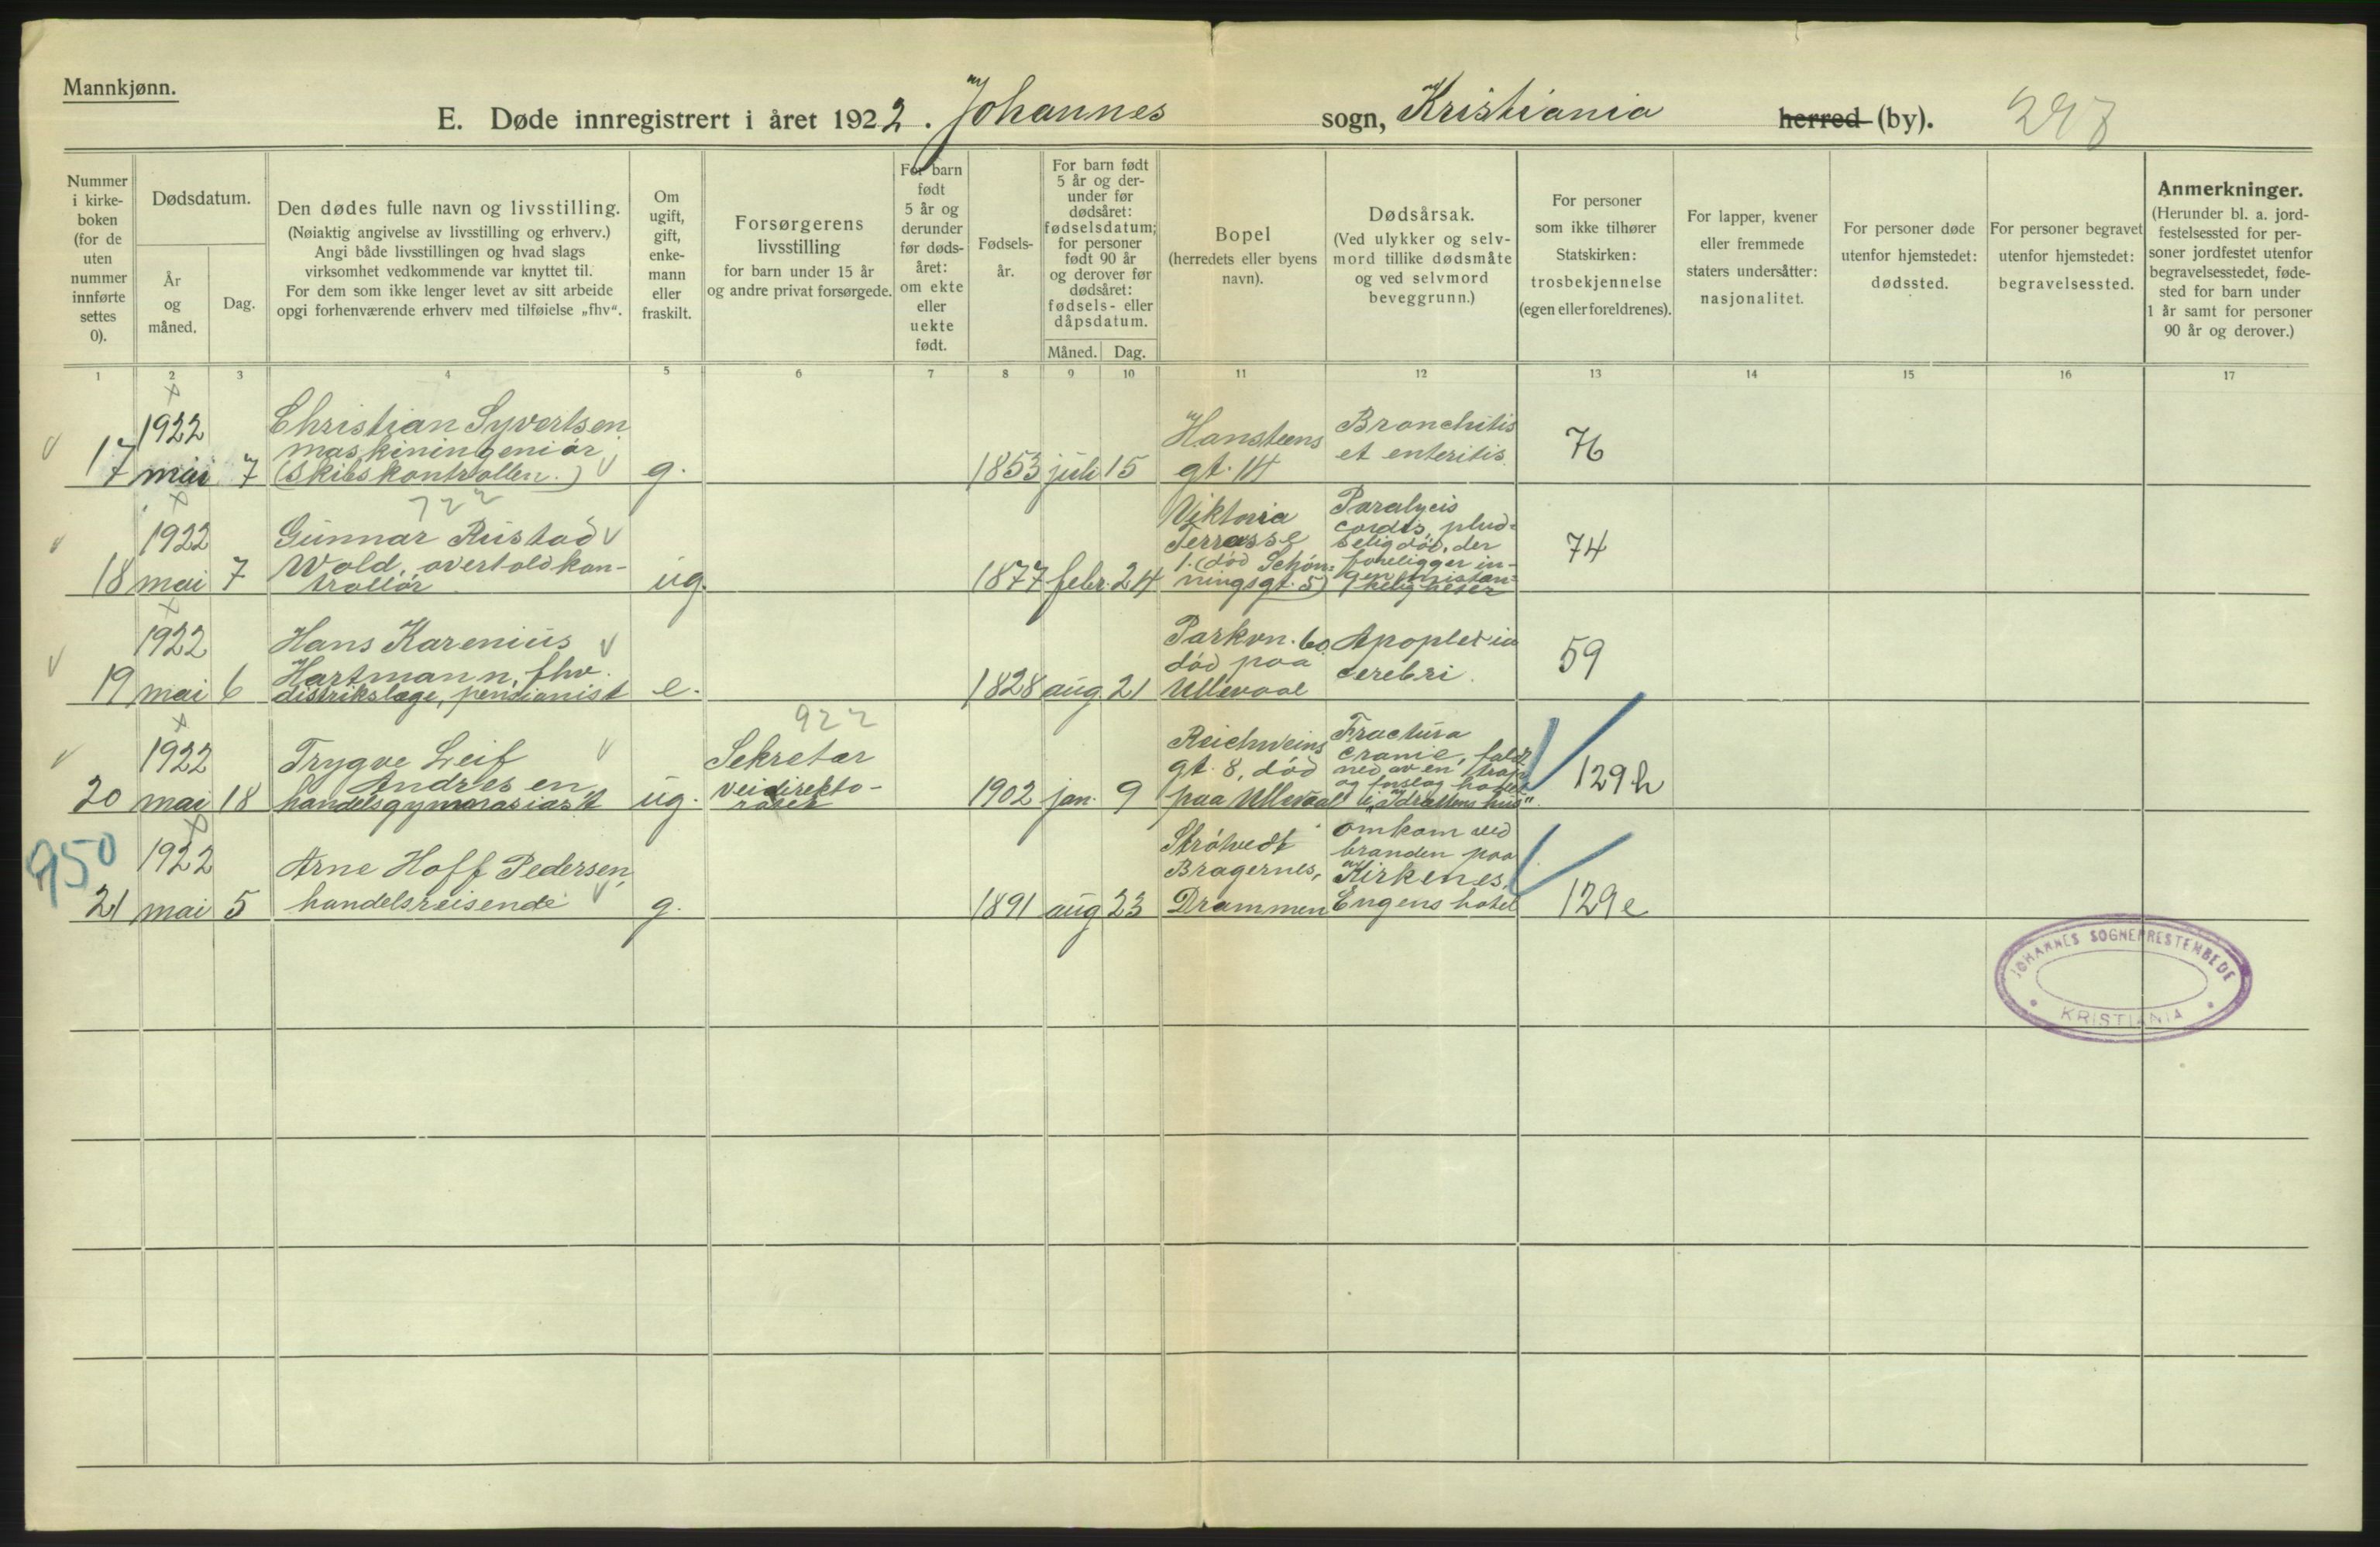 Mannkjønn.
E. Døde innregistrert i året 1922. Johannes sogn, Kristiania herred (by).
Nummer i kirkeboken (for de uten nummer innførte settes 0).
Dødsdatum.
År og måned.
Dag.
Den dødes fulle navn og livsstilling.
(Nøiaktig angivelse av livsstilling og erhverv.)
Angi både livsstillingen og hvad slags
virksomhet vedkommende var knyttet til.
For dem som ikke lenger levet av sitt arbeide
opgi forhenværende erhverv med tilføielse „fhv“.
Om
ugift,
gift,
enke-
mann
eller
fraskilt.
Forsørgerens
livsstilling
for barn under 15 år
og andre privat forsørgede.
For barn
født
5 år og
derunder
før døds-
året:
om ekte
eller
uekte
født.
Fødsels-
år.
For barn født
5 år og der-
under før
dødsåret:
fødselsdatum;
for personer
født 90 år
og derover før
dødsåret:
fødsels- eller
dåpsdatum.
Måned. Dag.
Bopel
(herredets eller byens
navn).
Dødsårsak.
(Ved ulykker og selv-
mord tillike dødsmåte
og ved selvmord
beveggrunn.)
For personer
som ikke tilhører
Statskirken:
trosbekjennelse
(egen eller foreldrenes).
For lapper, kvener
eller fremmede
staters undersåtter:
nasjonalitet.
For personer døde
utenfor hjemstedet:
dødssted.
For personer begravet
utenfor hjemstedet:
begravelsessted.
Anmerkninger.
(Herunder bl. a. jord-
festelsessted for per-
soner jordfestet utenfor
begravelsesstedet, føde-
sted for barn under
1 år samt for personer
90 år og derover.)
1 2 3 4 5 6 7 8 9 10 11 12 13 14 15 16 17
17
1922
mai 7
Christian Syvertsen
maskiningeniør
(Skibskontrollen.)
g.
1853 juli 15
Hansteens
gt. 14
Bronchitis
et enteritis
76
722
18
1922
mai 7
Gunnar Rustad
Wold, overtoldkon-
trollør
ug.
1877 febr. 24
Viktoria
Terrasse
1. (død Schøn-
ningsgt. 5)
Paralysis
cordis, plud-
selig død, der
foreligger in-
gen mistæn-
keligheter
74
19
1922
mai 6
Hans Karenius
Hartmann, fhv.
distrikslæge, pensionist
e.
1828 aug. 21
Parkvn. 60
død paa
Ullevaal
Apoplexia
cerebri.
59
922
20
1922
mai 18
Trygve Leif
Andresen
handelsgymnasiast
ug.
Sekretær
veidirekto-
ratet
1902 jan. 9
Reichweins
gt. 8, død
paa Ullevaal
Fractura
cranie, faldt
ned av en trap
og forslog hodet
i „Idrættens hus“
129h
950
21
1922
mai 5
Arne Hoff Pedersen,
handelsreisende
g.
1891 aug 23
Strøtvedt
Bragernes,
Drammen
omkom ved
branden paa
Kirkenes,
Engens hotel
129e
JOHANNES SOGNEPRESTEMBEDE
KRISTIANIA